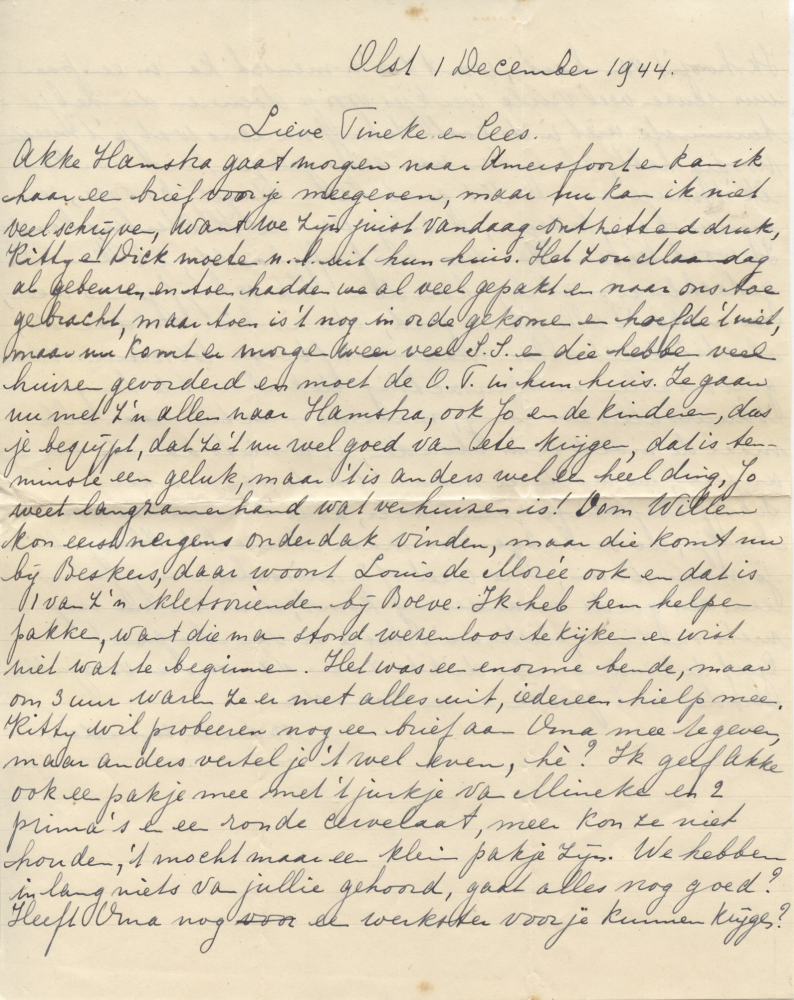 Olst 1 December 1944.
Lieve Tineke en Cees.
Akke Hamstra gaat morgen naar Amersfoort en kan ik
haar een brief voor je meegeven, maar nu kan ik niet
veel schrijven, want we zijn juist vandaag ontzettend druk,
Kitty en Dick moeten n.l. uit hun huis. Het zou Maandag
al gebeuren, en toen hadden we al veel gepakt en naar ons toe
gebracht, maar toen is 't nog in orde gekomen en hoefde 't niet,
maar nu komt er morgen weer veel S.S. en die hebben veel
huizen gevorderd en moet de O.T. in hun huis. Ze gaan
nu met z'n allen naar Hamstra, ook Jo en de kinderen, dus
je begrijpt, dat ze 't nu wel goed van eten krijgen, dat is ten-
minste een geluk, maar 't is anders wel een heel ding, Jo
weet langzamerhand wat verhuizen is! Oom Willem
kon eerst nergens onderdak vinden, maar die komt nu
bij Beskers, daar woont Louis de Morée ook en dat is
1 van z'n kletsvrienden bij Boeve. Ik heb hem helpen
pakken, want die man stond wezenloos te kijken en wist
niet wat te beginnen. Het was een enorme bende, maar
om 3 uur waren ze er met alles uit, iedereen hielp mee.
Kitty wil probeeren nog een brief aan Oma mee te geven,
maar anders vertel je 't wel even, hè? Ik geef Akke
ook een pakje mee met 't jurkje van Mineke en 2
prima's en een ronde cervelaat, meer kon ze niet
houden, 't mocht maar een klein pakje zijn. We hebben
in lang niets van jullie gehoord, gaat alles nog goed?
Heeft Oma nog voor een werkster voor je kunnen krijgen?